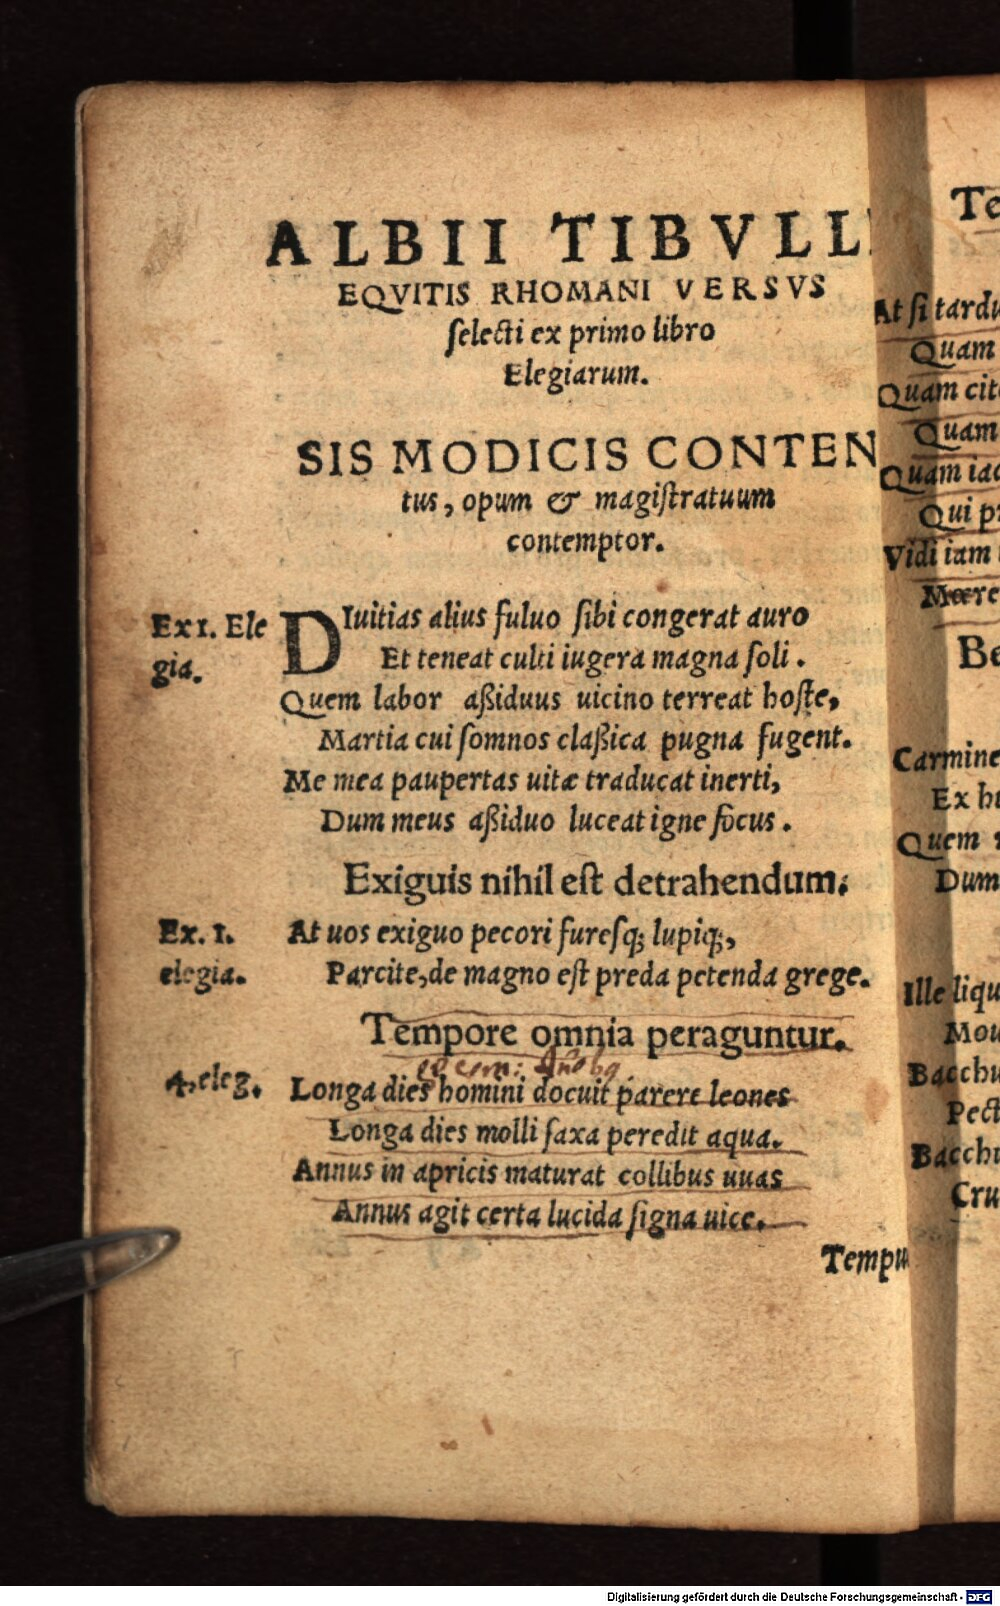 ALBII TIBVLLI
EQVITIS RHOMANI VERSVS
selecti ex primo libro
Elegiarum.
SIS MODICIS CONTEN
tus, opum & magistratuum
contemptor.
Ex 1. Ele
gia.
DIuitias alius fuluo sibi congerat auro
Et teneat culti iugera magna soli.
Quem labor aßiduus uicino terreat hoste,
Martia cui somnos claßica pugna fugent.
Me mea paupertas uitæ traducat inerti,
Dum meus aßiduo luceat igne focus.
Exiguis nihil est detrahendum.
Ex. 1.
elegia.
At uos exiguo pecori furesq; lupiq;,
Parcite, de magno est preda petenda grege.
Tempore omnia peraguntur.
4. eleg.
Longa dies homini docuit parere leones
Longa dies molli saxa peredit aqua.
Annus in apricis maturat collibus uuas
Annus agit certa lucida signa uice.
Tempu
Te
At si tardu
Quam
Quam cit
Quam
Quam iac
Qui pr
Vidi iam
Mœre
Be
Carmine
Ex hu
Quem
Dum
Ille liqu
Mou
Bacchu
Pect
Bacchu
Cru
Digitalisierung gefördert durch die Deutsche Forschungsgemeinschaft - DFG